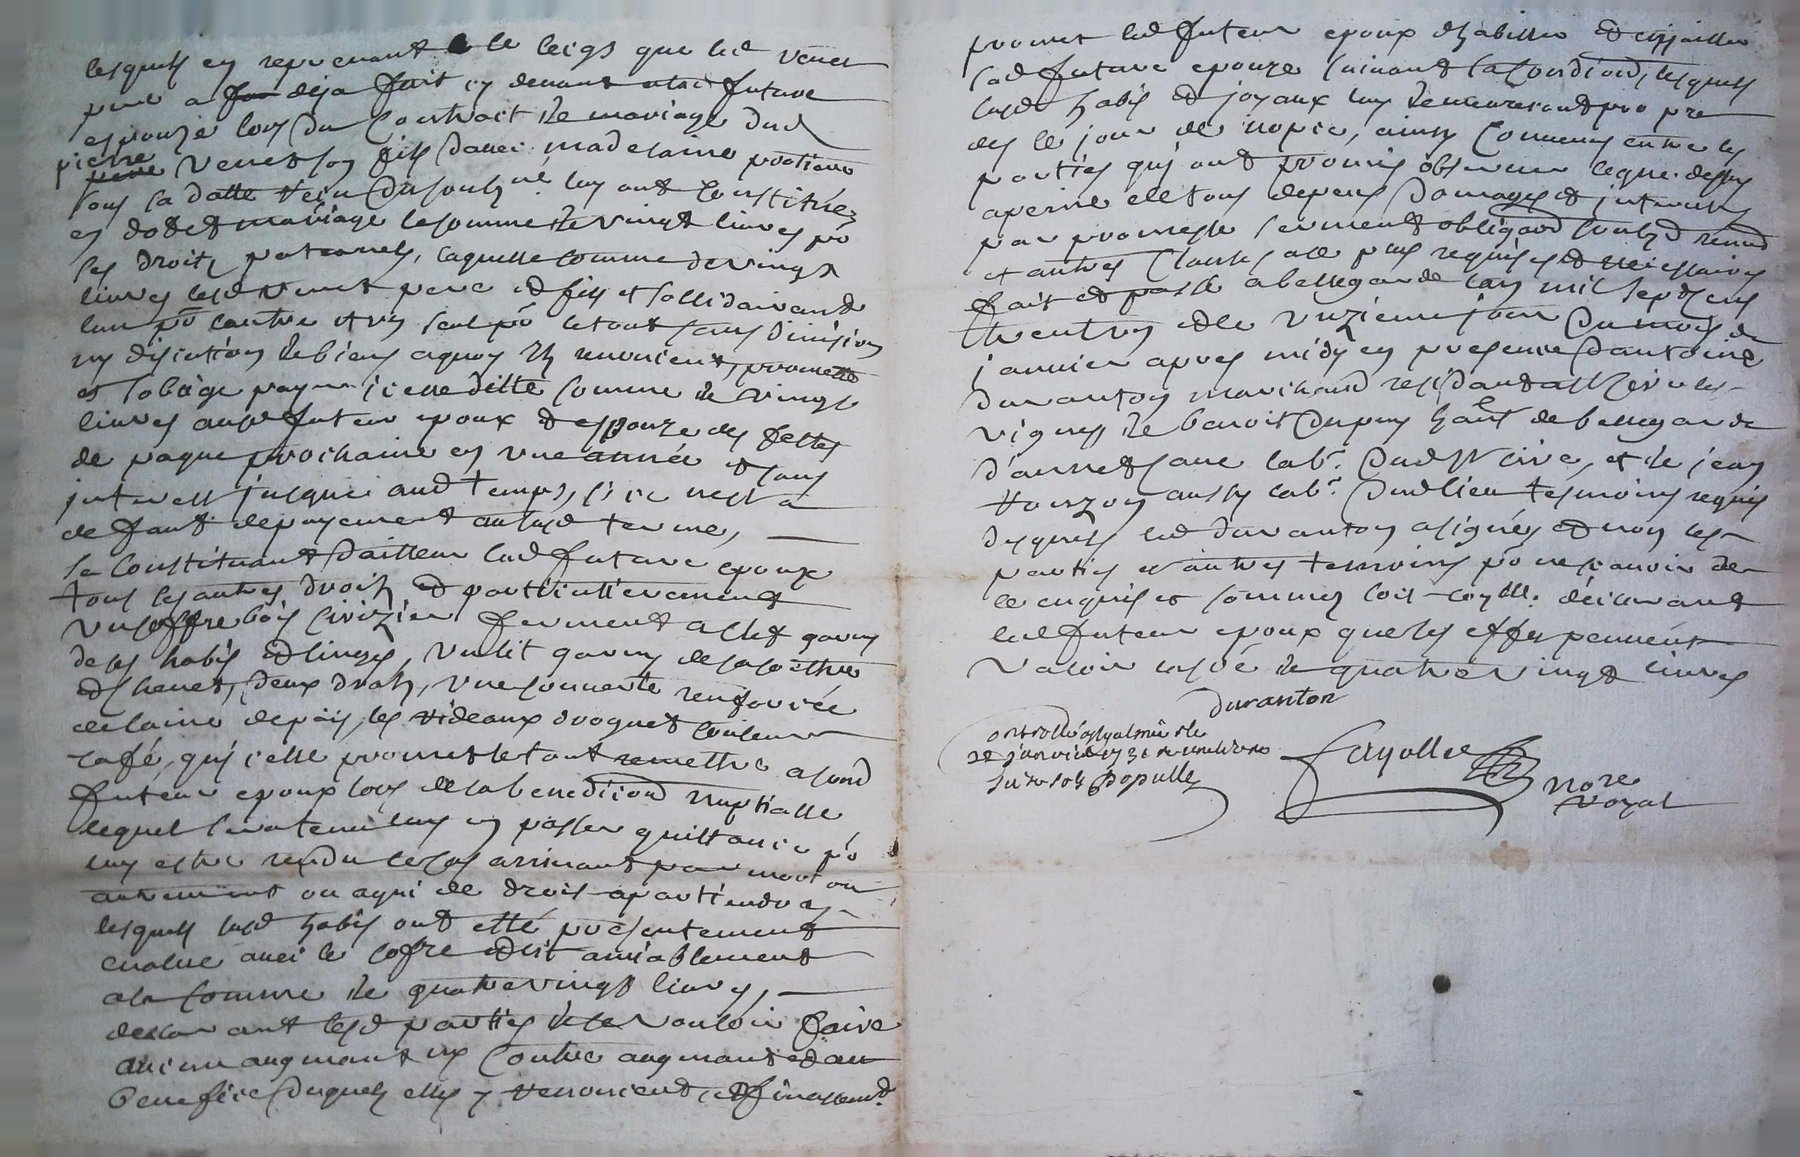 lesquels en reprenant le leigs que led venet
pere a deja fait cy devant a lad future
espouze lors du Contract de mariage dud
pierre venet son fils d'avec madelaine
sous sa datte receu du soubzné luy ont constitué
en dot et mariage la somme de vingt livres po
ses droits paternels, laquelle somme de vingt
livres lesd venet pere et fils et sollidairement
lun po lautre et un seul po le tout sans division
ny discution de biens a quoy ils renoncent, promette
et soblige payer icelle ditte somme de vingt
livres ausd futeur epoux et espouze des festes
de paque prochaine en une année et sans
interest jusques aud temps, si ce nest a
deffaut de payement ausd terme,
se Constituant d'ailleur lad future epouze
tous ses autres droits et particullierement
un coffre bois serizier fermant a clef garny
de ses habis et linges, un lit garny de sa coettre
et chevet, deux drabs, une couverte
de laine de pais, les rideaux droguet couleur
café, quicelle promet le tout remettre a sond
futeur epoux lors de la benediciond nuptialle
lequel sera tenu luy en passer quittance po
luy estre rendu le cas arrivant par mort ou
autrement ou a qui de droit apartiendra
lesquels susd habis ont etté presentement
evalue avec le cofre et lit amiablement
a la somme de quatre vingt livres,
declarant lesd parties de ne vouloir faire
aucun augmant ny contre augmant et au
benefice duquels elles y renoncent, et finallemt
promet led futeur epoux d'habiller et enjoailler
lad future epouze suivant sa Condiciond, lesquels
susd habis et joyaux luy demeureront propre
des le jour de nopce, ainsy Convenu entre les
parties qui ont promis observer ce que dessus
a peine de tous depens domages et interests
par promesse serment obligaõd soubzd renond
et autres Clauses a ce plus requises et necessaires
fait et passé a bellegarde lan mil sept cens
trente un et le unzieme jour du mois de
janvier apres midy en presence d'antoine
duranton marchand residant a
vignes de benoit Dupuy habt de bellegarde
labr. dud, et de jean
aussy labr. dud lieu tesmoins requis
desquels led duranton a signés et non les
parties et autres temoins po ne scavoir de
ce enquis et sommez loit royalle. declarant
led futeur epoux que ses effes peuvent
valoir la somme de quatre vingt livres
duranton
ontrollé a st galmier le
22 janvier 1731
Populle
fayolle
Nore
royal